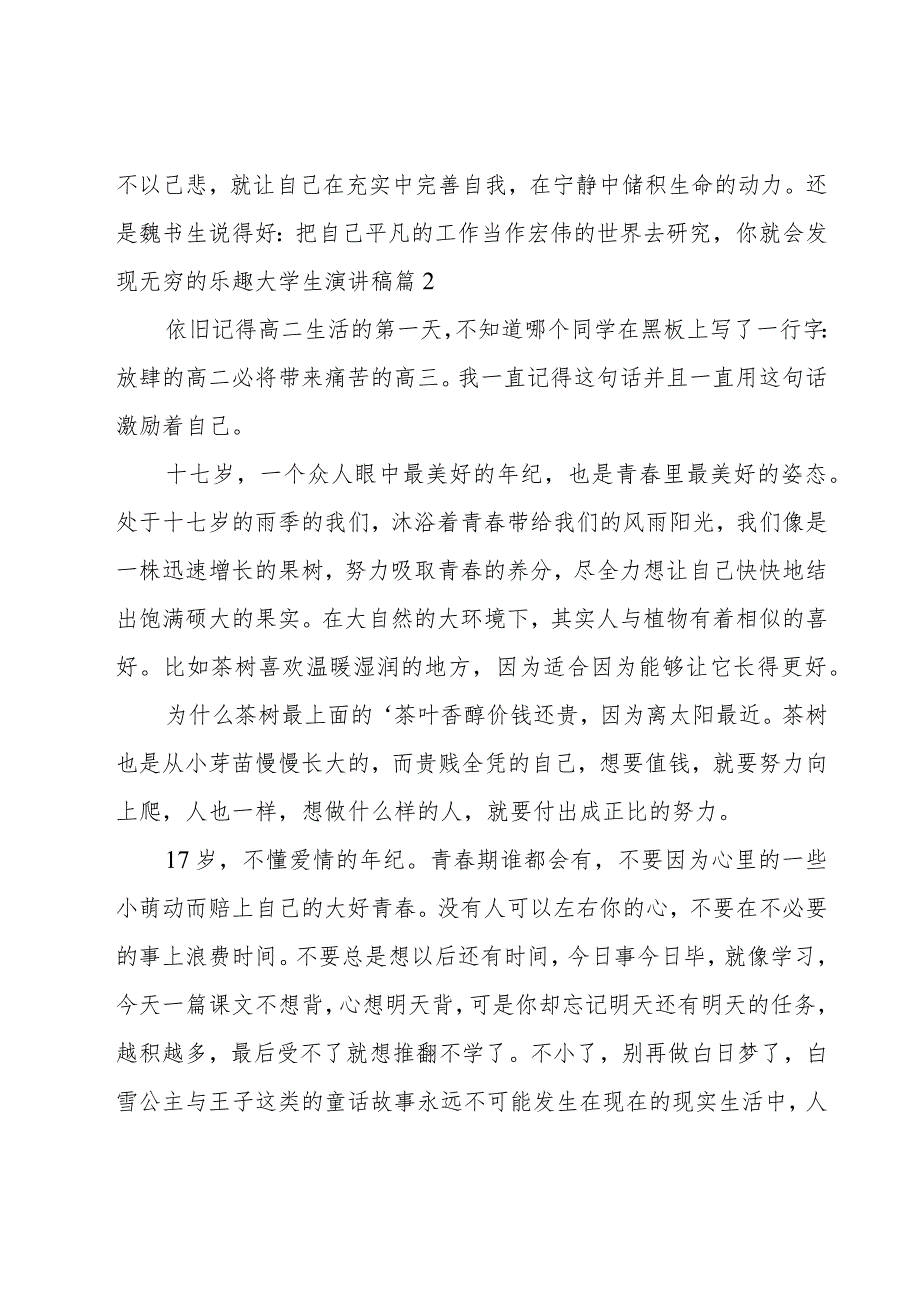 不以己悲，就让自己在充实中完善自我，在宁静中储积生命的动力。还
是魏书生说得好：把自己平凡的工作当作宏伟的世界去研究，你就会发
现无穷的乐趣大学生演讲稿篇2
依旧记得高二生活的第一天，不知道哪个同学在黑板上写了一行字：
放肆的高二必将带来痛苦的高三。我一直记得这句话并且一直用这句话
激励着自己。
十七岁，一个众人眼中最美好的年纪，也是青春里最美好的姿态。
处于十七岁的雨季的我们，沐浴着青春带给我们的风雨阳光，我们像是
一株迅速增长的果树，努力吸取青春的养分，尽全力想让自己快快地结
出饱满硕大的果实。在大自然的大环境下，其实人与植物有着相似的喜
好。比如茶树喜欢温暖湿润的地方，因为适合因为能够让它长得更好。
为什么茶树最上面的‘茶叶香醇价钱还贵，因为离太阳最近。茶树
也是从小芽苗慢慢长大的，而贵贱全凭的自己，想要值钱，就要努力向
上爬，人也一样，想做什么样的人，就要付出成正比的努力。
17岁，不懂爱情的年纪。青春期谁都会有，不要因为心里的一些
小萌动而赔上自己的大好青春。没有人可以左右你的心，不要在不必要
的事上浪费时间。不要总是想以后还有时间，今日事今日毕，就像学习，
今天一篇课文不想背，心想明天背，可是你却忘记明天还有明天的任务，
越积越多，最后受不了就想推翻不学了。不小了，别再做白日梦了，白
雪公主与王子这类的童话故事永远不可能发生在现在的现实生活中，人